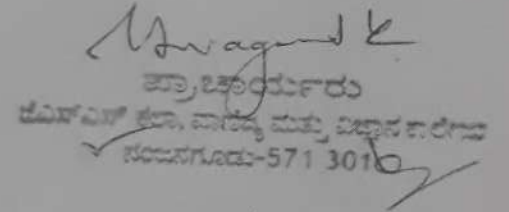 ಪ್ರಾಚಾರ್ಯರು
ಜೆಎಸ್ಎಸ್ ಕಲಾ, ವಾಣಿಜ್ಯ ಮತ್ತು ವಿಜ್ಞಾನ ಕಾಲೇಜು
ನಂಜನಗೂಡು-571 301